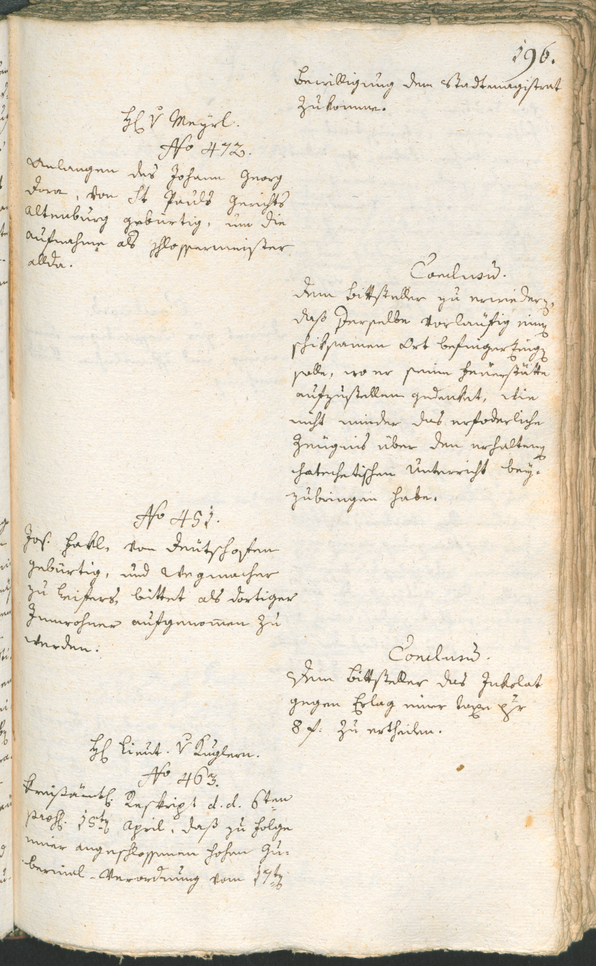 196.
Bewilligung dem Stadtmagistrat
zukomme.
H. v Meyrl.
No 472.
Anlangen des Johann Georg
Dorn, von St Pauls Gerichts
Altenburg gebürtig, um die
Aufnahme als Schlossermeister
allda.
Conclusum.
Dem Bittsteller zu erwiedern,
daß derselbe vorläufig einen
schiksamen Ort
solle, wo er seine Feuerstätte
aufzustellen gedenket, wie
nicht minder das erforderliche
Zeugnis über den erhaltenen
chatechetischen Unterricht bey-
zubringen habe.
No 451.
Jos. Hakl, von Deutschofen
gebürtig, und Wegmacher
zu Leifers, bittet als dortiger
Innwohner aufgenommen zu
werden.
Conclusum.
Dem Bittsteller das Inkolat
gegen Erlag einer Taxe pr
8 f. zu ertheilen.
H. Lieut. v Kuglern.
No 463.
Kreisämtl. Reskript d. d. 6ten
15ten April, daß zu Folge
einer angeschlossenen hohen Gu-
bernial-Verordnung vom 17ten